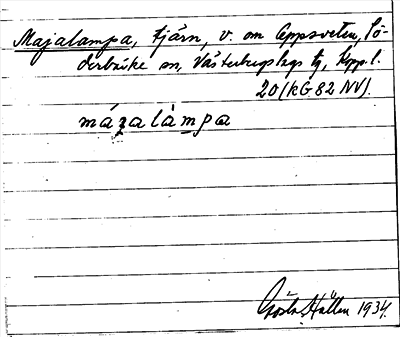 Majalampa, tjärn, v. om Uppsveten, Sö-
derbärke sn, Västerbergslags tg, Kopp. l.
20 (KG 82 NV).
mázalàmpa
Gösta Hallen 1934.